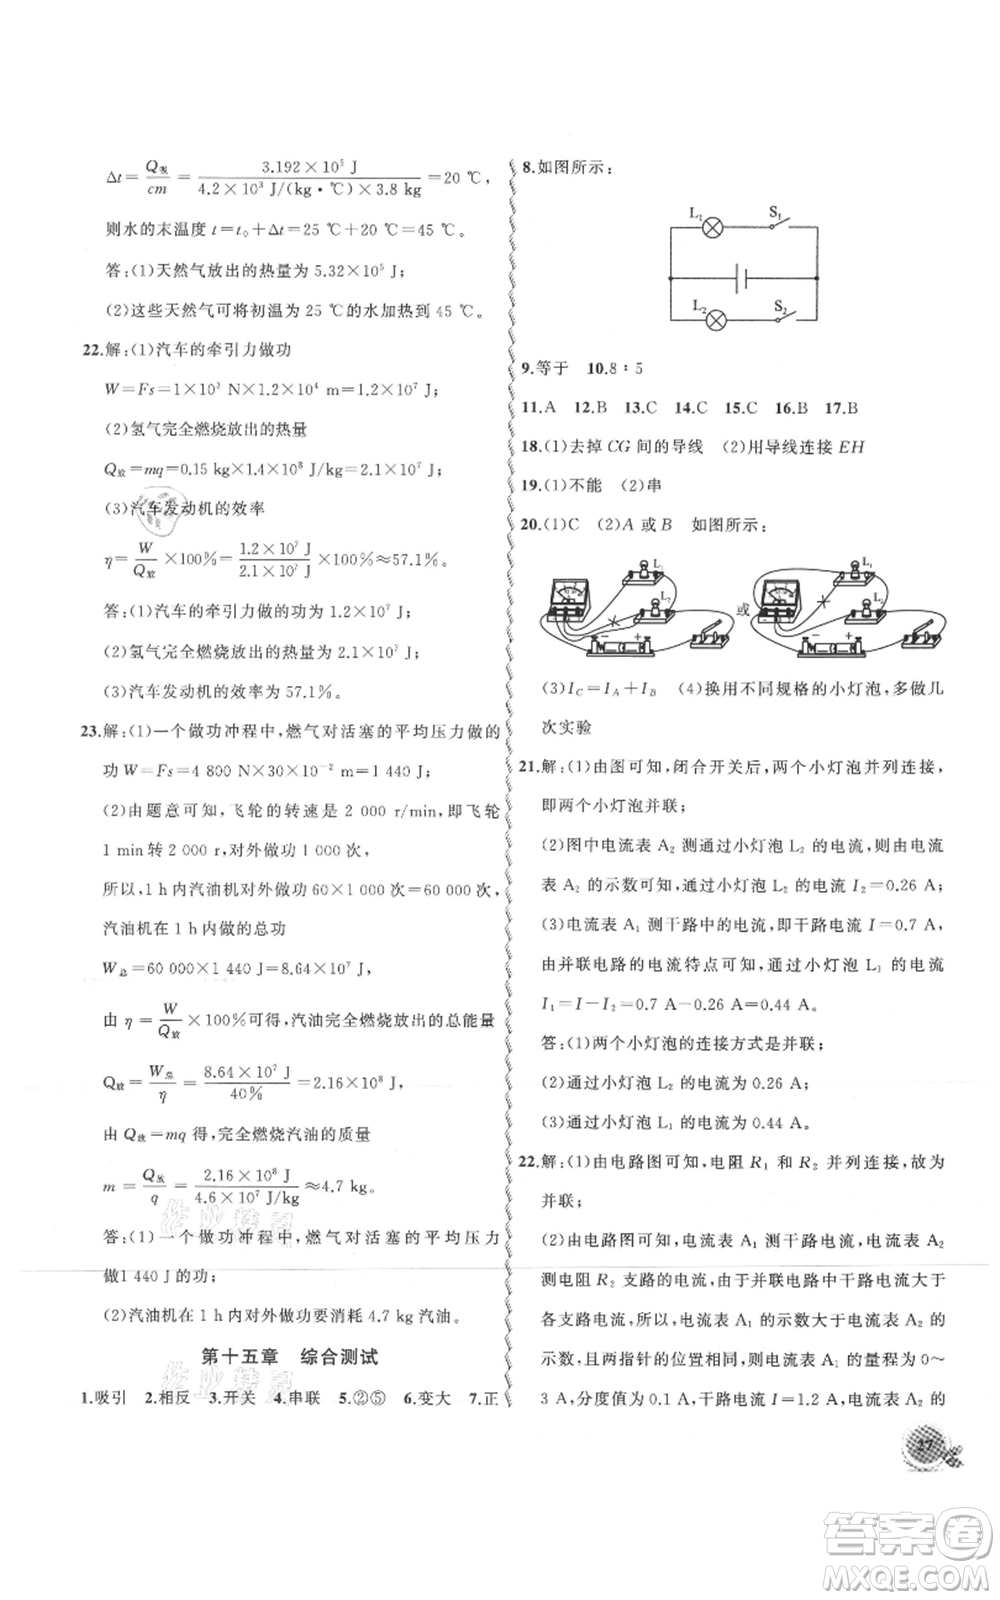 Δt=Q吸/cm=3.192×10⁵ J/4.2×10³ J/(kg·℃)×3.8 kg=20 ℃,
则水的末温度 t=t₀+Δt=25 ℃+20 ℃=45 ℃。
答:(1)天然气放出的热量为 5.32×10⁵ J;
(2)这些天然气可将初温为 25 ℃的水加热到 45 ℃。
22.解:(1)汽车的牵引力做功
W=Fs=1×10³ N×1.2×10⁴ m=1.2×10⁷ J;
(2)氢气完全燃烧放出的热量
Q放=mq=0.15 kg×1.4×10⁸ J/kg=2.1×10⁷ J;
(3)汽车发动机的效率
η=W/Q放×100%=1.2×10⁷ J/2.1×10⁷ J×100%≈57.1%。
答:(1)汽车的牵引力做的功为 1.2×10⁷ J;
(2)氢气完全燃烧放出的热量为 2.1×10⁷ J;
(3)汽车发动机的效率为 57.1%。
23.解:(1)一个做功冲程中,燃气对活塞的平均压力做的
功 W=Fs=4 800 N×30×10⁻² m=1 440 J;
(2)由题意可知,飞轮的转速是 2 000 r/min,即飞轮
1 min转 2 000 r,对外做功 1 000 次,
所以,1 h内汽油机对外做功 60×1 000 次=60 000 次,
汽油机在 1 h 内做的总功
W总=60 000×1 440 J=8.64×10⁷ J,
由 η=W/Q放×100%可得,汽油完全燃烧放出的总能量
Q放=W总/η=8.64×10⁷ J/40%=2.16×10⁸ J,
由 Q放=mq 得,完全燃烧汽油的质量
m=Q放/q=2.16×10⁸ J/4.6×10⁷ J/kg≈4.7 kg。
答:(1)一个做功冲程中,燃气对活塞的平均压力
做1 440 J的功;
(2)汽油机在 1 h 内对外做功要消耗 4.7 kg 汽油。
第十五章 综合测试
1.吸引 2.相反 3.开关 4.串联 5.②⑤ 6.变大 7.正
8.如图所示:
L₁ S₁
L₂ S₂
9.等于 10.8∶5
11.A 12.B 13.C 14.C 15.C 16.B 17.B
18.(1)去掉 CG 间的导线 (2)用导线连接 EH
19.(1)不能 (2)串
20.(1)C (2)A 或 B 如图所示:
L₁ L₂ − + 或 L₁ L₂ − +
(3)I_C=I_A+I_B (4)换用不同规格的小灯泡,多做几
次实验
21.解:(1)由图可知,闭合开关后,两个小灯泡并列连接,
即两个小灯泡并联;
(2)图中电流表 A₂ 测通过小灯泡 L₂ 的电流,则由电流
表 A₂ 的示数可知,通过小灯泡 L₂ 的电流 I₂=0.26 A;
(3)电流表 A₁ 测干路中的电流,即干路电流 I=0.7 A,
由并联电路的电流特点可知,通过小灯泡 L₁ 的电流
I₁=I−I₂=0.7 A−0.26 A=0.44 A。
答:(1)两个小灯泡的连接方式是并联;
(2)通过小灯泡 L₂ 的电流为 0.26 A;
(3)通过小灯泡 L₁ 的电流为 0.44 A。
22.解:(1)由电路图可知,电阻 R₁ 和 R₂ 并列连接,故为
并联;
(2)由电路图可知,电流表 A₁ 测干路电流,电流表 A₂
测电阻 R₂ 支路的电流,由于并联电路中干路电流大于
各支路电流,所以,电流表 A₁ 的示数大于电流表 A₂ 的
示数,且两指针的位置相同,则电流表 A₁ 的量程为 0~
3 A,分度值为 0.1 A,干路电流 I=1.2 A,电流表 A₂ 的
27
作业精灵
作业精灵
答案卷
MXQE.COM